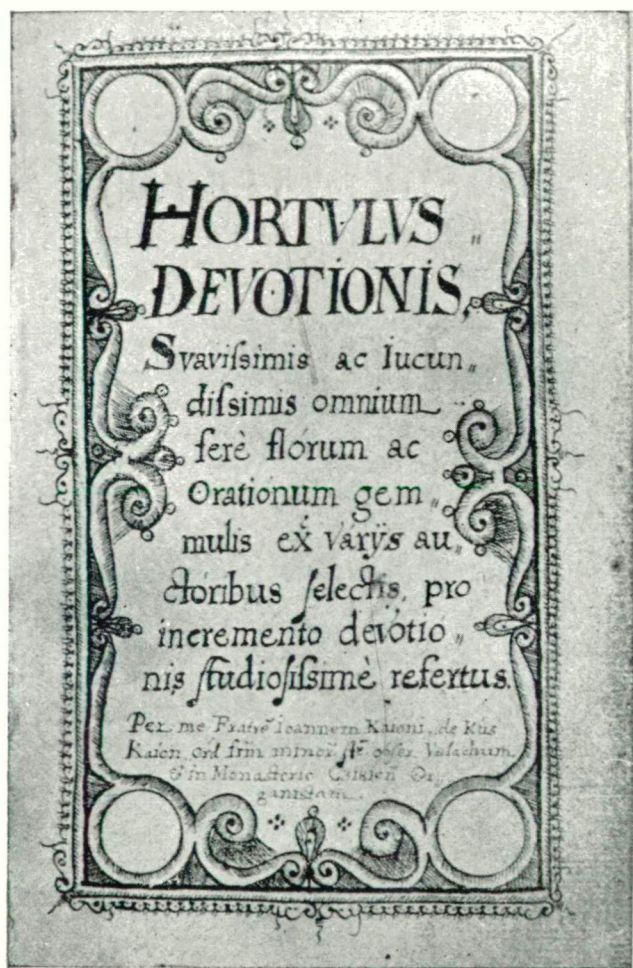 HORTVLVS „
DEVOTIONIS,
Svavißimis ac Iucun„
dißimis omnium
ferè florum ac
Orationum gem„
mulis ex varijs au„
ctoribus ſelectis, pro
incremento devotio„
nis ſtudioſißimè refertus.
Per me Fratrē Ioannem Kaioni, de Kis
Kaion, ord frm minor str obser. Valachum
& in Monasterio Csikien Or„
ganistam